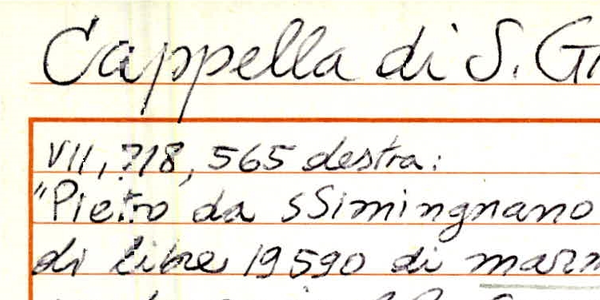 Cappella di S.
VII, 718, 565 destra:
"Pietro da sSimingnano
di libre 19590 di